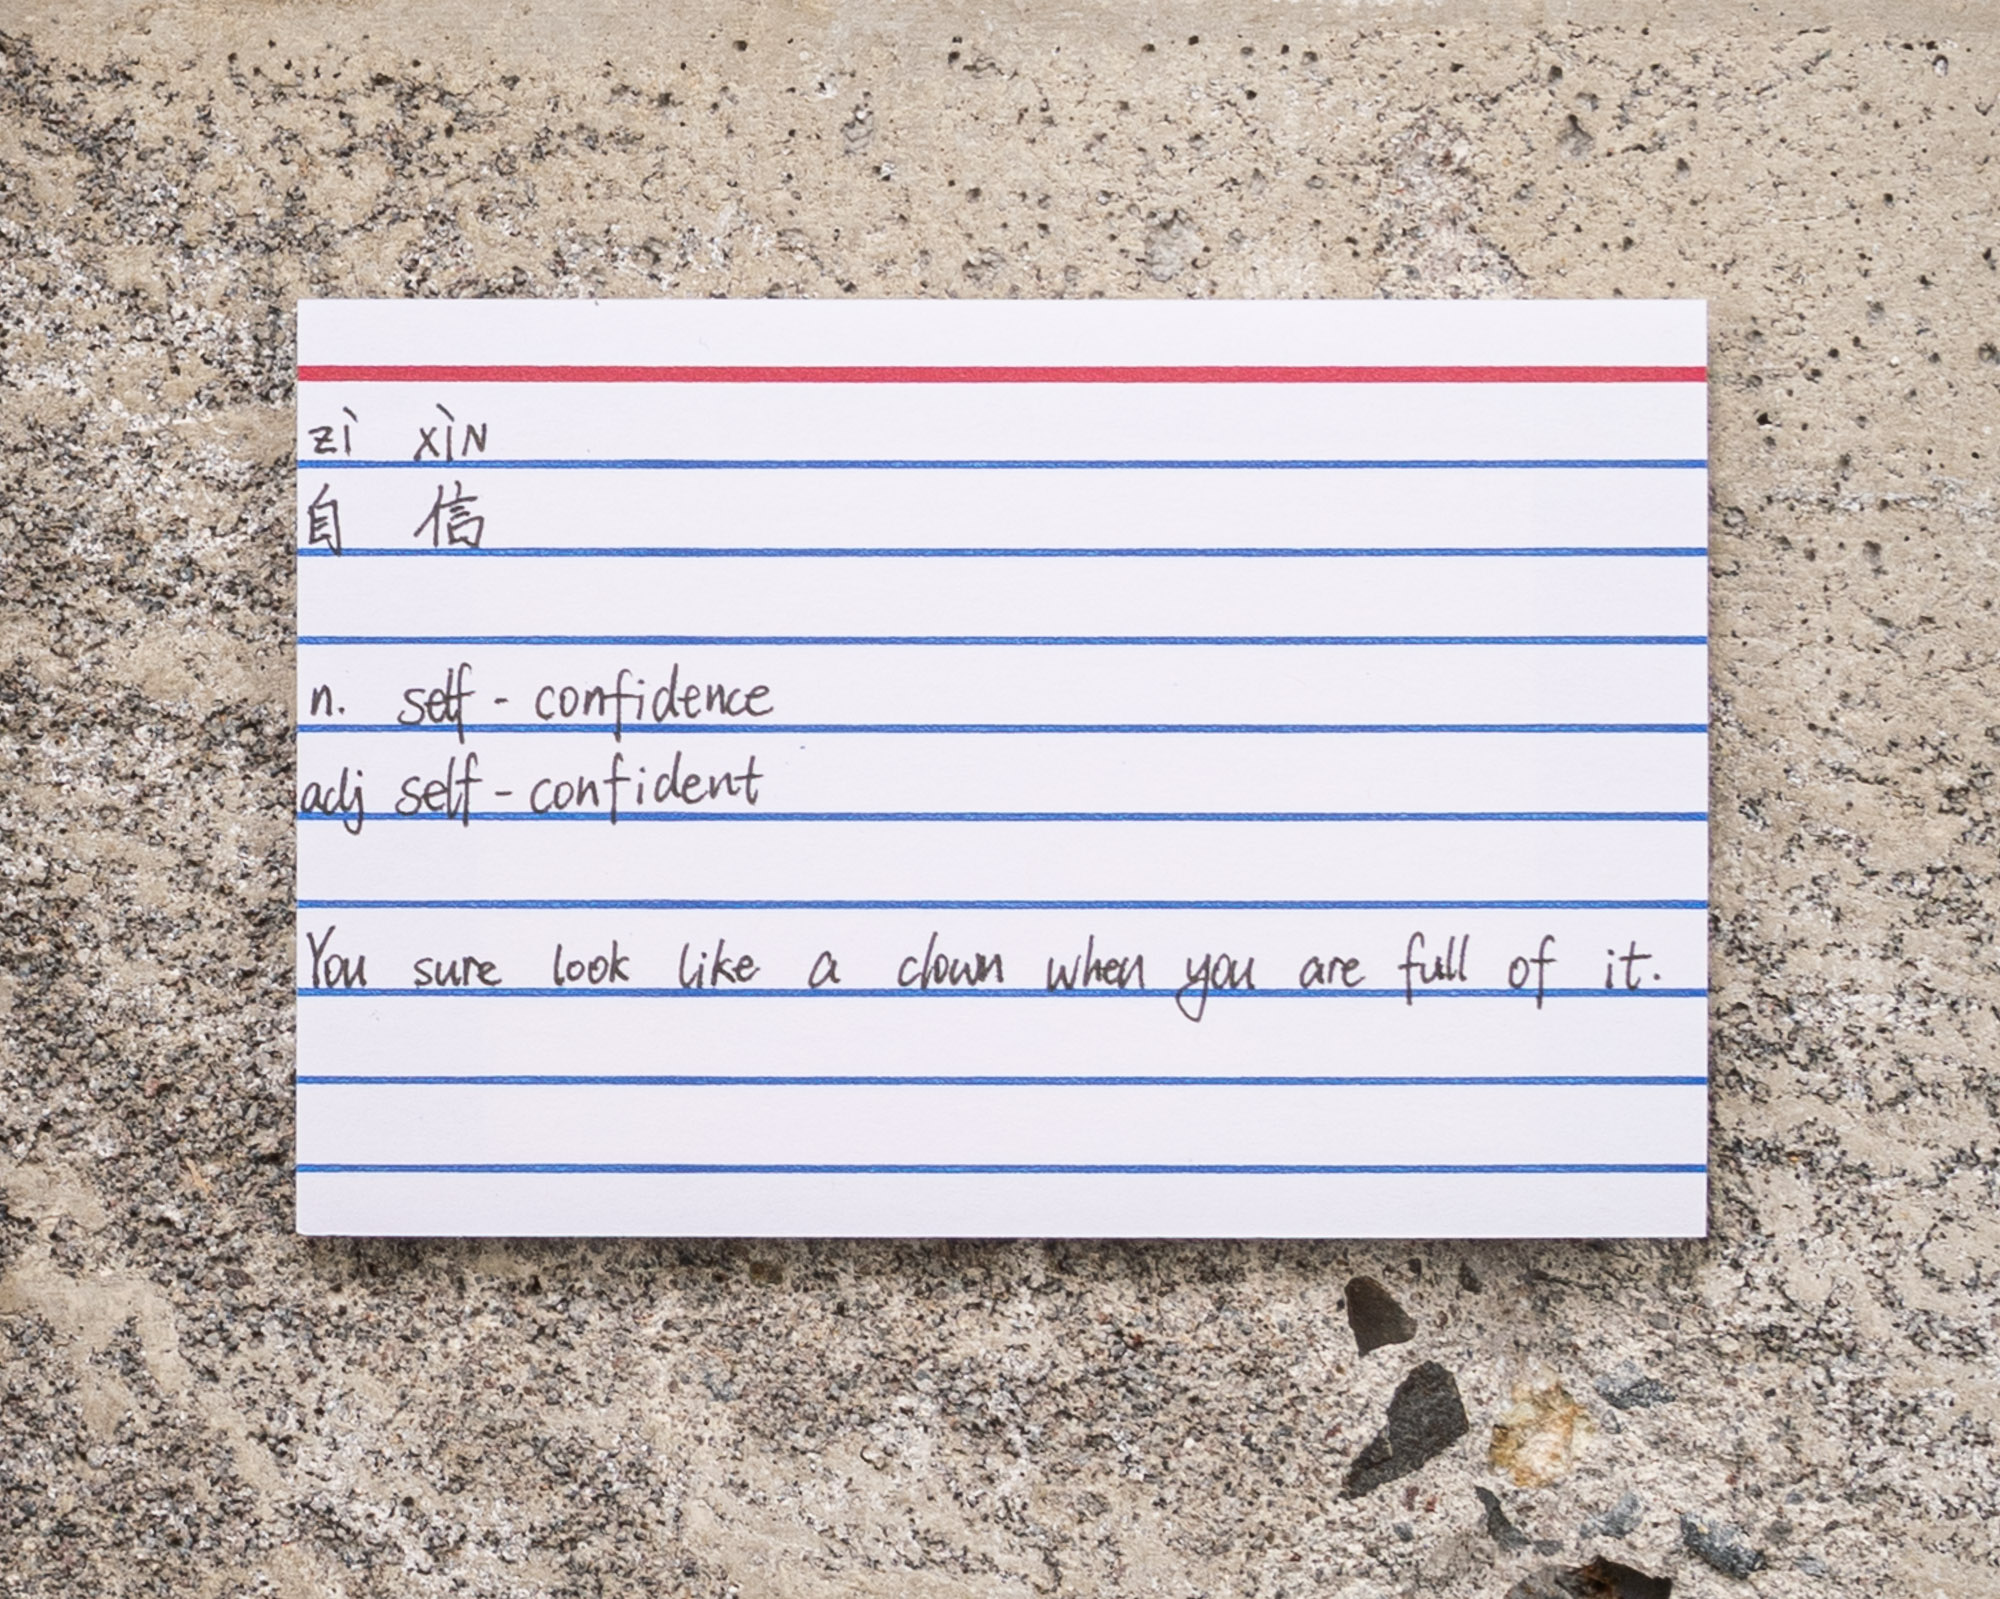 zì xìn
自 信
n. self-confidence
adj self-confident
You sure look like a clown when you are full of it.